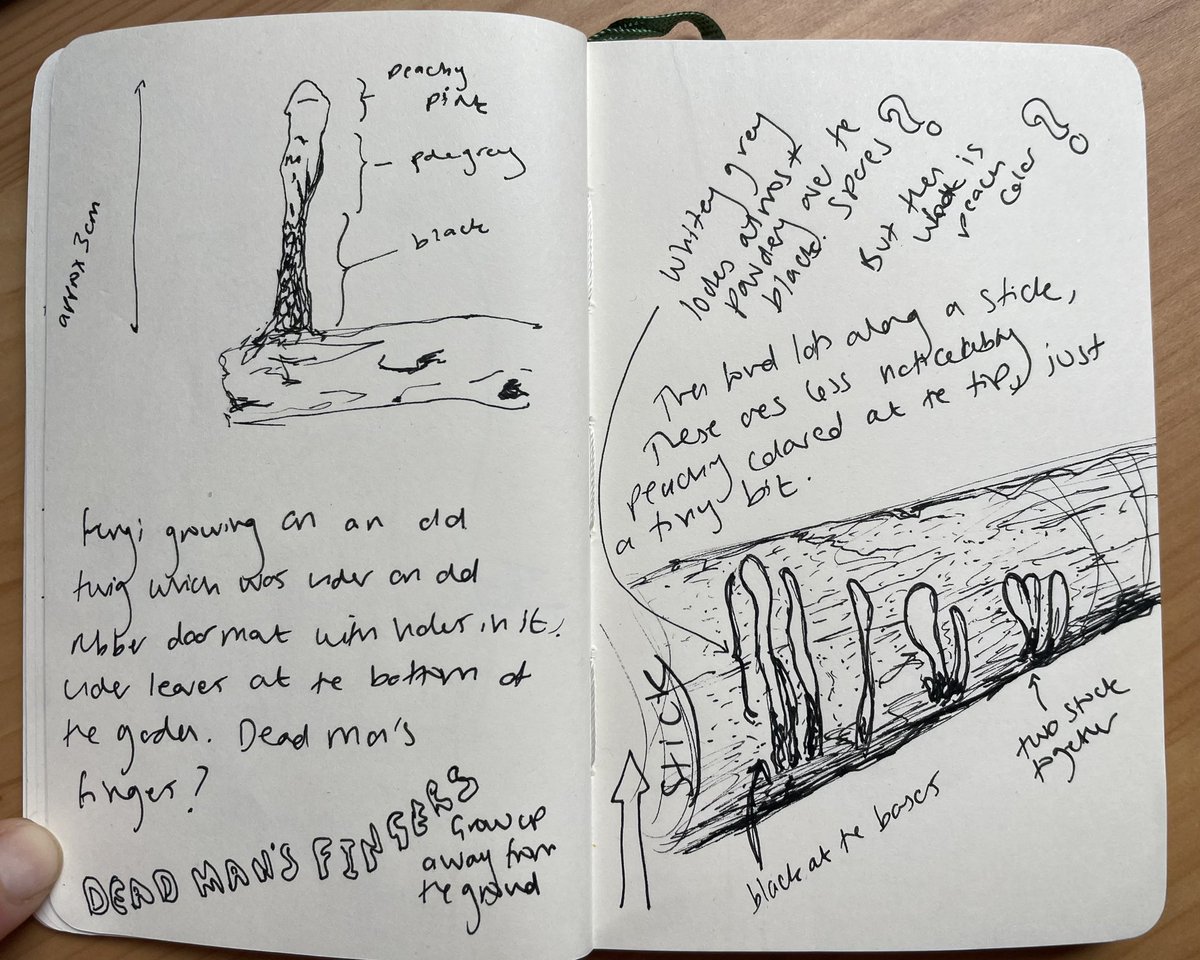 peachy
pink
pale gray
black
approx 3cm
fungi growing on an old
twig which was under an old
rubber door mat with holes in it.
under leaves at the bottom of
the garden. Dead man's
finger?
DEAD MAN'S FINGERS
Grow up
away from
the ground
Whitey gray
looks almost
powdery over the
black. Spores?
But then
is
peach
color?
Then found lots along a stick,
These ones less noticeably
peachy colored at the tip, just
a tiny bit.
STICK
two stuck
together
black at the bases